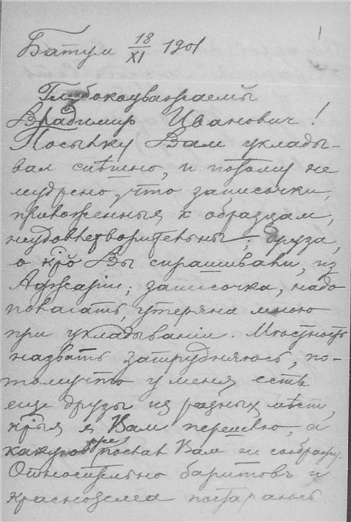 Батум 18/XI 1901
Глубокоуважаемы
Владимир Иванович!
Посылку Вам уклады-
вал спѣшно, и потому не
мудрено, что записочки,
приложенныя к образцам,
неудовлетворительны; друза,
о кјо Вы спрашивали, из
Аджаріи; записочка, надо
полагать, утеряна мною
при укладываніи. Мѣстность
назвать затрудняюсь, по-
тому что у меня есть
еще друзы из разных мѣст,
я Вам перешлю, а
какую послал Вам не соображу.
Относительно баритовъ и
краснозема постараюсь